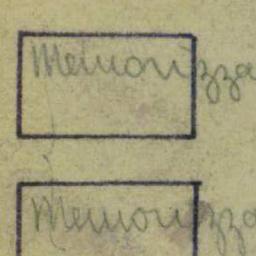 Memorizza
Memorizza